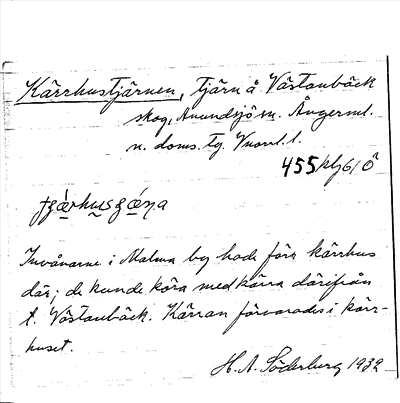 Kärrhustjärnen, tjärn å Västanbäck
skog, Anundsjö sn. Ångerml.
n. doms. tg Vnorrl. l.
455
Invånarne i Malma by hade förr kärrhus
där; de kunde köra med kärra därifrån
t. Västanbäck. Kärran förvarades i kärr-
huset.
H. A. Söderberg 1932